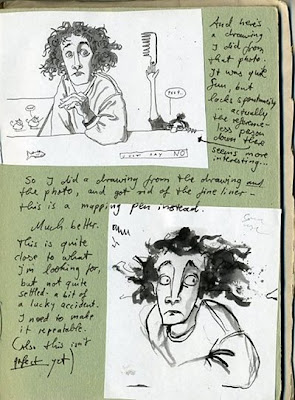 And here's
a drawing
I did from
that photo.
It was quite
fun, but
lacks spontaneity
- actually
the reference-
less person
down there
seems more
interesting...
JUST SAY NO!
So I did a drawing from the drawing and
the photo, and got rid of the fine liner -
this is a mapping pen instead.
Much better.
This is quite
close to what
I'm looking for,
but not quite
settled. a bit of
a lucky accident.
I need to make
it repeatable.
(also this isn't
perfect yet)